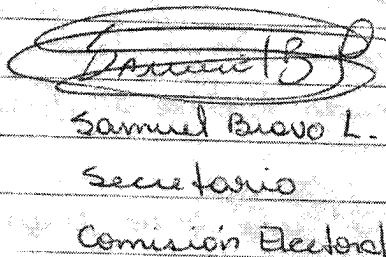 Samuel B
Samuel Bravo L.
Secretario
Comisión Electoral